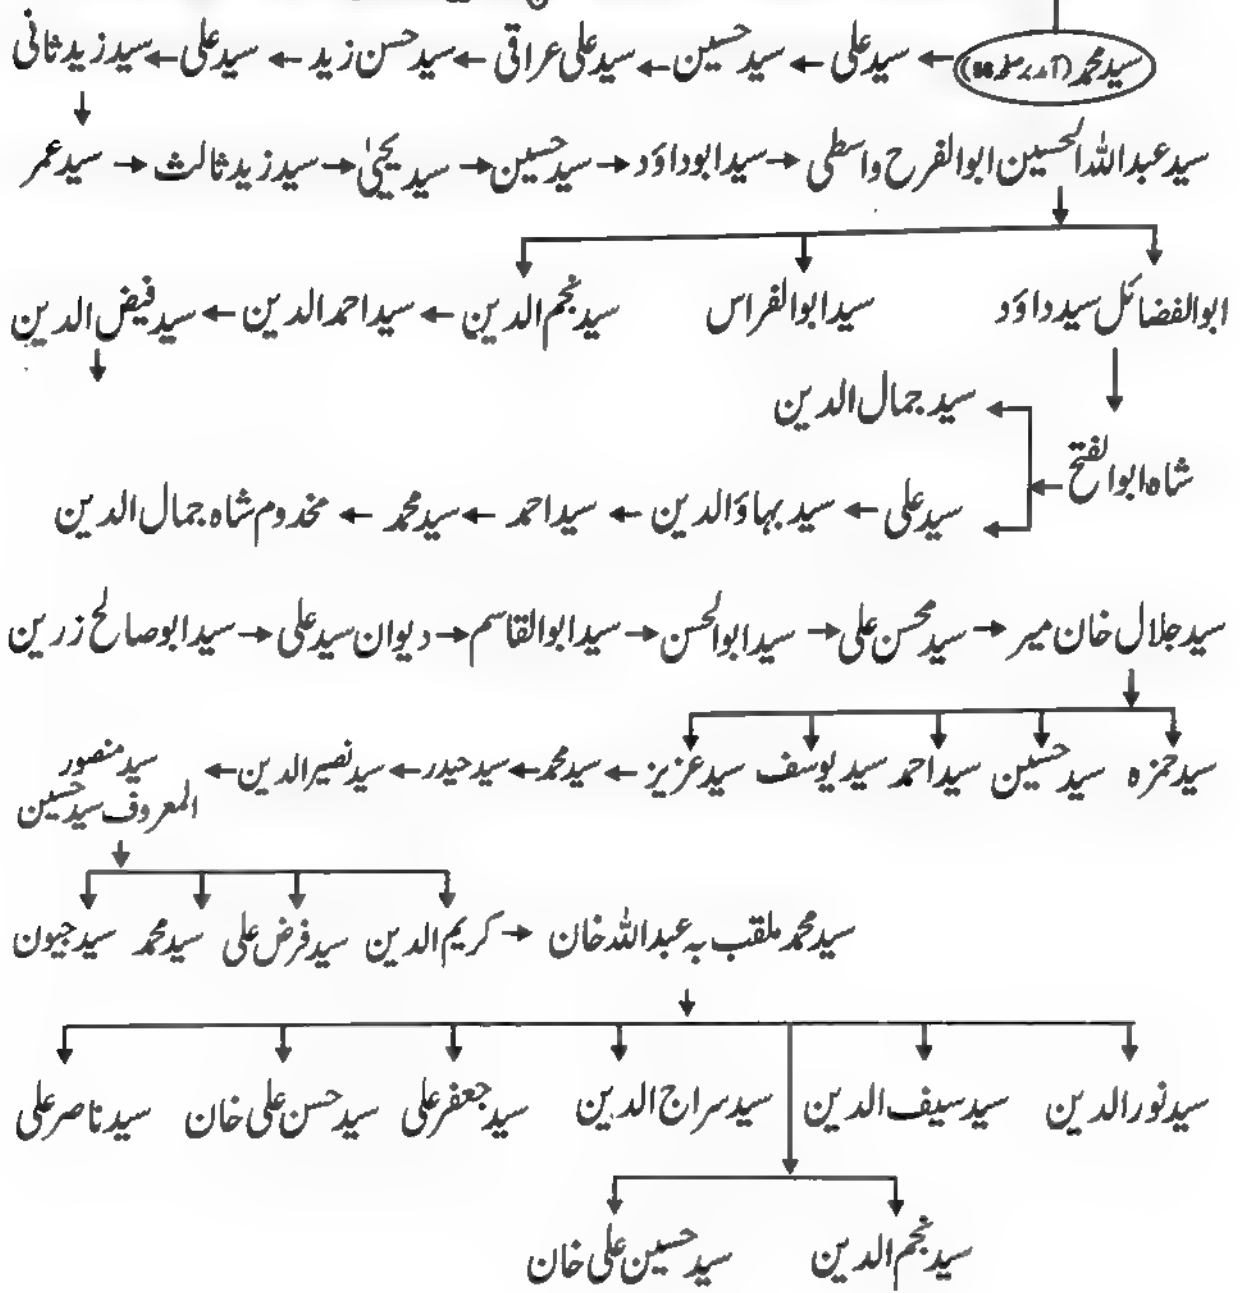 سید محمد (آمد بر صفحہ 98) ← سید علی ← سید حسین ← سید علی عراقی ← سید حسن زید ← سید علی ← سید زید ثانی
سید عبداللہ الحسین ابوالفرح واسطی ← سید ابوداؤد → سید حسین → سید یحییٰ → سید زید ثالث → سید عمر
ابوالفضائل سید داؤد سید ابوالفراس سید نجم الدین ← سید احمد الدین ← سید فیض الدین
سید جمال الدین
شاہ ابوالفتح
سید علی ← سید بہاؤ الدین ← سید احمد ← سید محمد ← مخدوم شاہ جمال الدین
سید جلال خان میر → سید محسن علی → سید ابوالحسن → سید ابوالقاسم → دیوان سید علی → سید ابوصالح زرین
سید حمزہ سید حسین سید احمد سید یوسف سید عزیز ← سید محمد ← سید حیدر ← سید نصیر الدین ← سید منصور
المعروف سید حسین
سید محمد ملقب بہ عبداللہ خان → کریم الدین سید فرض علی سید محمد سید جیون
سید نور الدین سید سیف الدین سید سراج الدین سید جعفر علی سید حسن علی خان سید ناصر علی
سید نجم الدین سید حسین علی خان